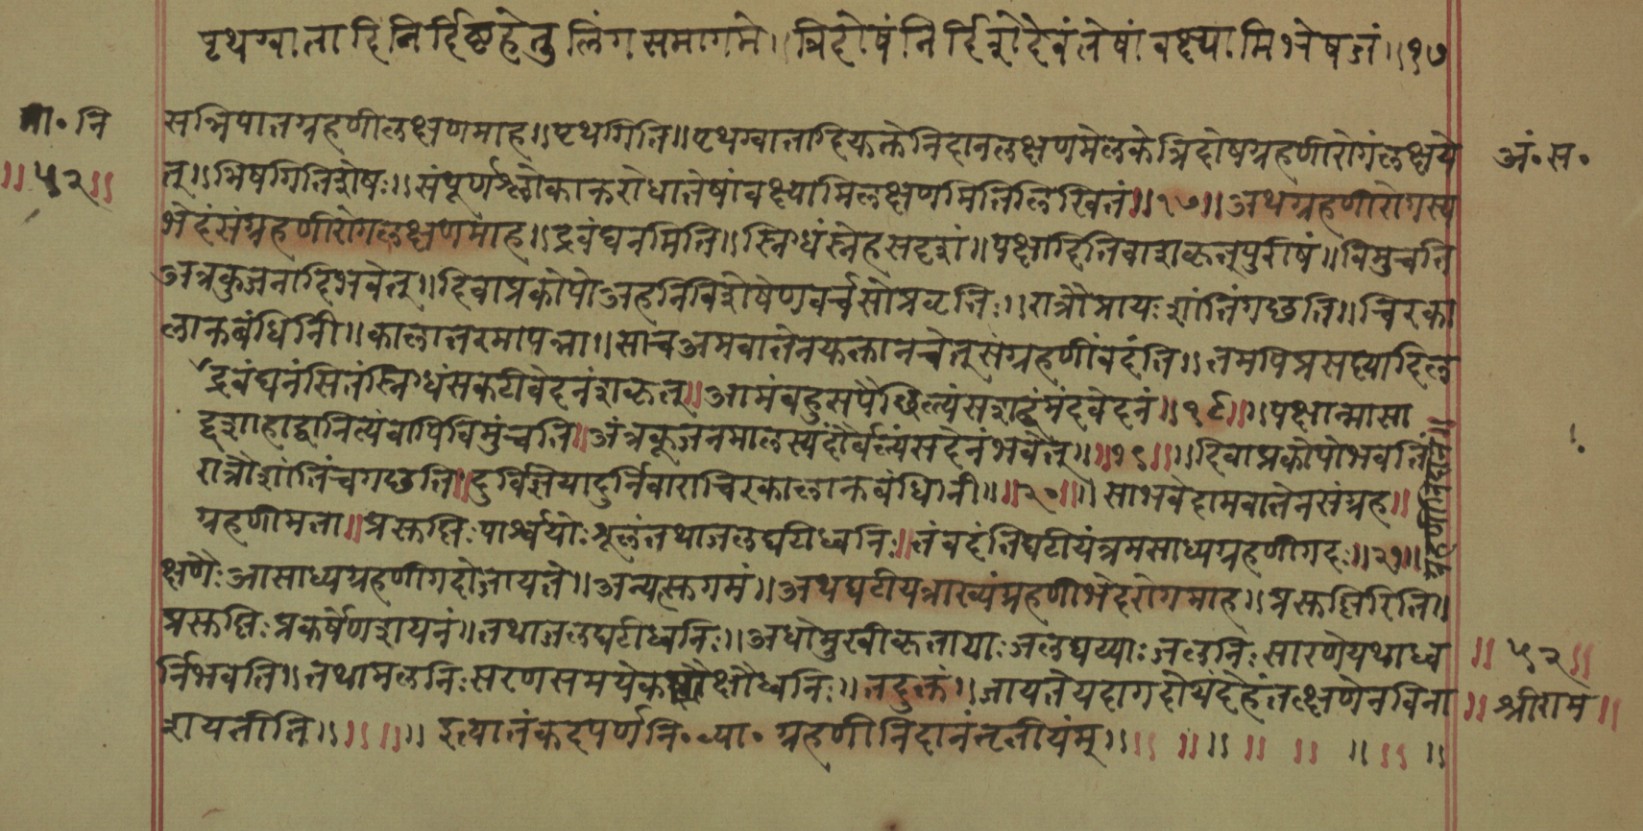 पृथग्वातादिनिर्दिष्टहेतुलिंगसमागमे।। त्रिदोषंनिर्दिशेदेवंतेषांवक्ष्यामिभेषजं।।१७
मा॰नि
सन्निपातग्रहणीलक्षणमाह।। पृथगिति।। पृथग्वातादिप्युक्तेनिदानलक्षणमेलकेत्रिदोषग्रहणीरोगंलक्षये
अं॰स॰
।।५२।।
त्।। भिषगितिशेषः।। संपूर्णश्लोकानुरोधात्तेषांवक्ष्यामिलक्षणमितिलिखितं।।१७।। अथग्रहणीरोगस्य
भेदंसंग्रहणीरोगलक्षणमांह।। द्रवंघनमिति।। स्निग्धंस्नेहसदृशं।। पक्षादितिवाशकृत्पुरीषं।। विमुचति
अत्रकुजनादिभवेत्।। दिवाप्रकोपोअहनिविशेषेणवर्चसोप्रवृत्तिः।। रात्रौप्रायःशांतिंगछति।। चिरका
लानुबंधिनी।। कालांतरमापन्ना।। साचअमवातेनयुक्तानचेत्संग्रहणींवदंति।। तमपिप्रसध्यादिल
द्रवंघनंसितंस्निग्धंसकटीवेदनंशकृत्।। आमंबहुसपैछिल्यंसशब्दंमंदवेदनं।।१८।। पक्षान्मासा
द्दशाहाद्वानित्यंवापिविमुंचति।। अंत्रकूजनमालस्यंदौर्बल्यंसदनंभवेत्।।१९।। दिवाप्रकोपोभवतिं
रात्रौशांतिंचगछति।। दुर्विज्ञेयादुर्निवाराचिरकालानुबंधिनी।।२०।। साभवेदामवातेनसंग्रह।।
ग्रहणीमता।। प्रसुप्तिःपार्श्वयोःशूलंतथाजलघटीध्वनिः।। तंवदंतिघटीयंत्रमसाध्यंग्रहणीगदः।।२१।।
क्षणैःआसाध्यग्रहणीगदोजायते।। अन्यत्सुगमं।। अथघटीयंत्राख्यंग्रहणीभेदरोगमाह।। प्रसुप्तिरिति।।
प्रसुप्तिःप्रकर्षेणशयनं।। तथाजलघटीध्वनिः।। अधोमुखीकृतायाःजलघट्याःजलनिःसारणेयथाध्व
।।५२।।
र्निभवति।। तथामलनिःसरणसमयेकुक्षौध्वनिः।। तदुक्तं।। जायतेयदागदोयंदेहंतत्क्षणेनविना
।।श्रीराम।।
शयतीति।। ।। ।। इत्यातंकदपर्णनि॰व्या॰ग्रहणीनिदानंतृतीयंम्।। ।। ।। ।। ।। ।। ।। ।।